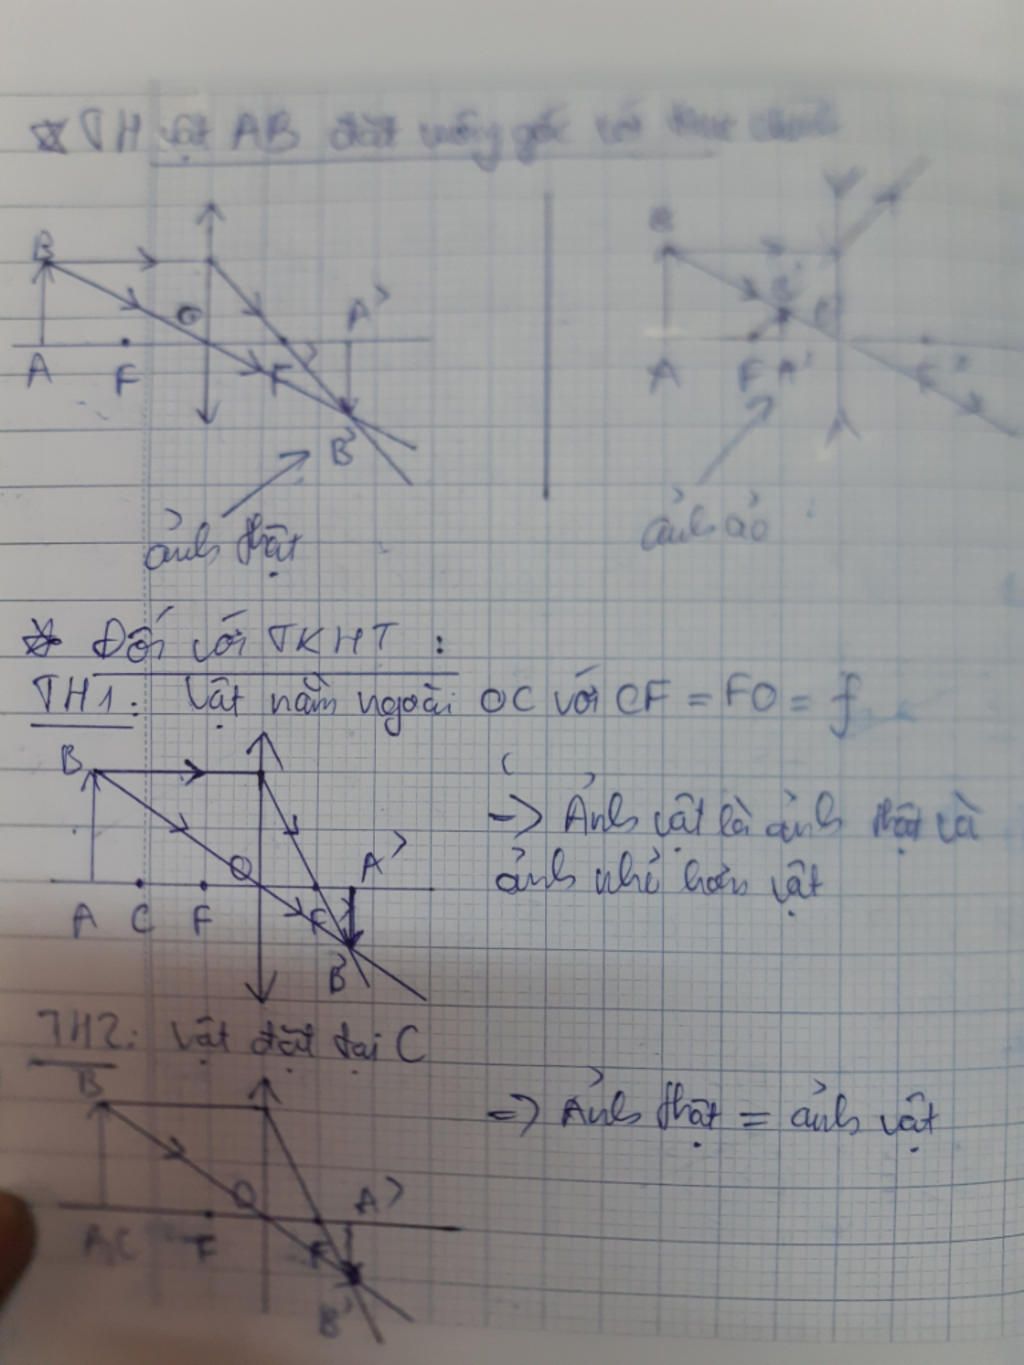 * TH vật AB đặt vuông góc với trục chính
B
O
A'
A
F
F'
B'
ảnh thật
B
B'
O
A
F
A'
F'
ảnh ảo
* Đối với TKHT :
TH1: Vật nằm ngoài OC với CF = FO = f
B
O
A'
A
C
F
F'
B'
-> Ảnh vật là ảnh thật và
ảnh nhỏ hơn vật
TH2: Vật đặt tại C
B
O
A'
A, C
F
F'
B'
=> Ảnh thật = ảnh vật